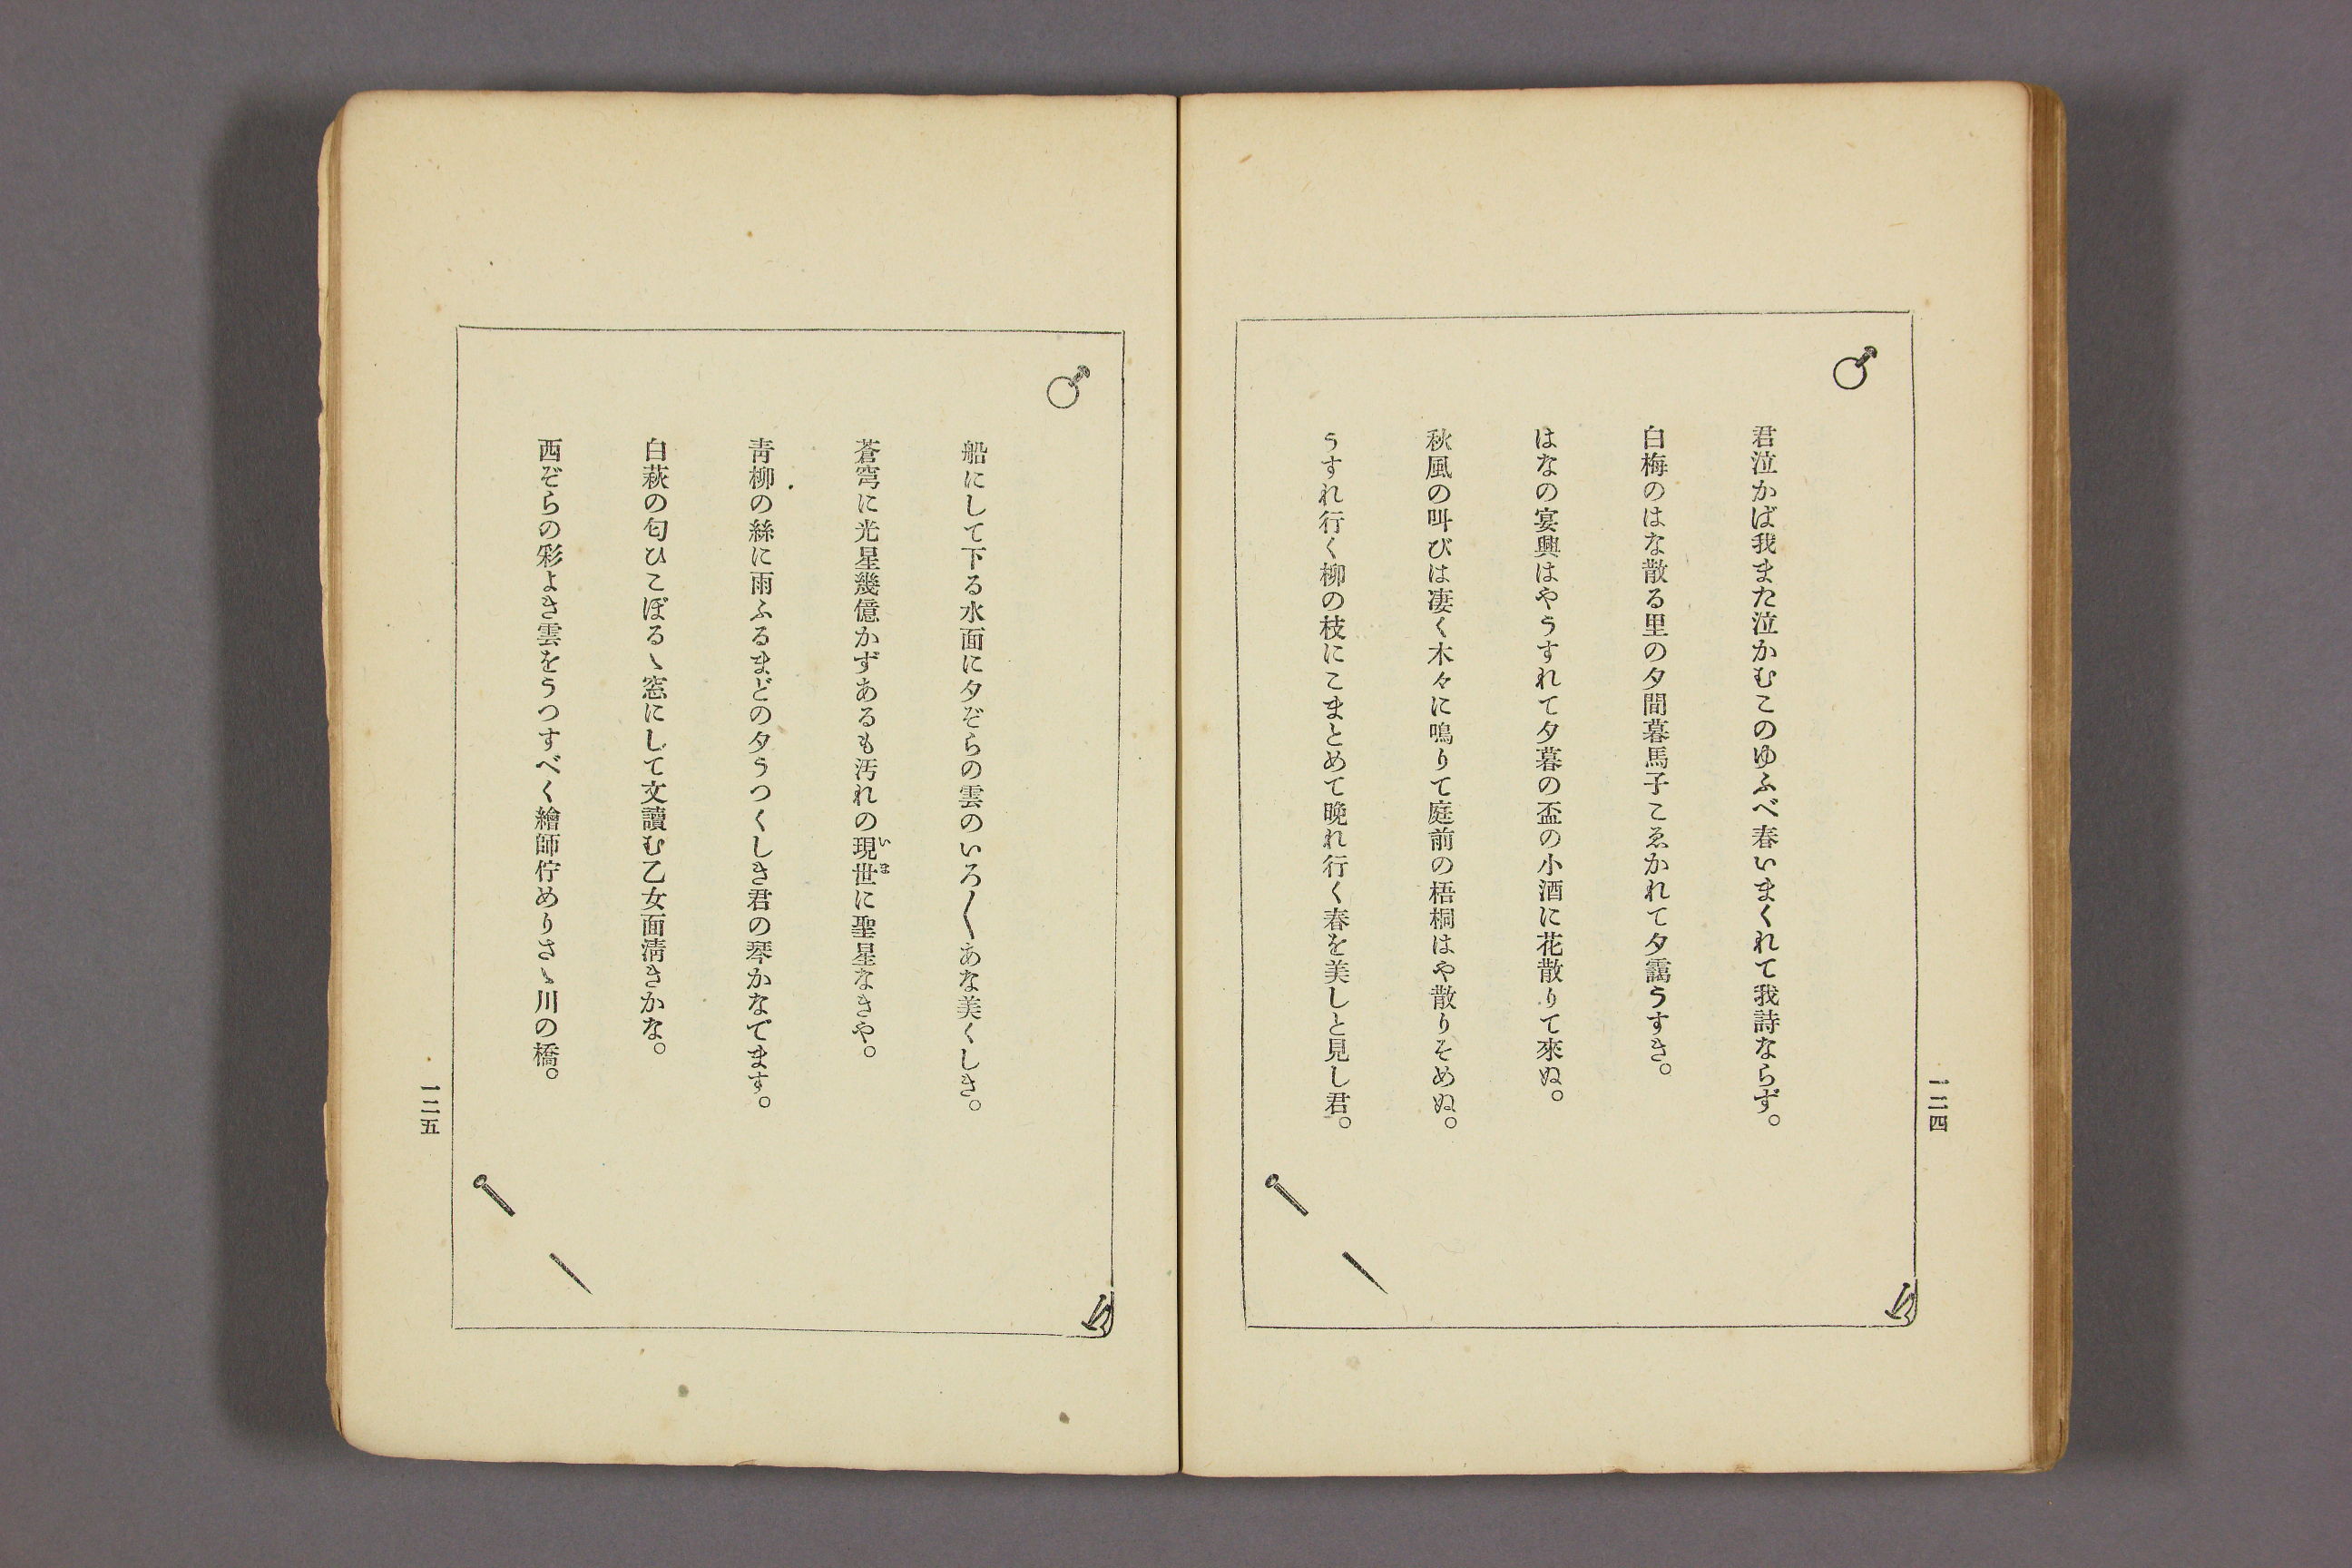 君泣かば我また泣かむこのゆふべ春いまくれて我詩ならず。
白梅のはな散る里の夕間暮馬子こゑかれて夕靄うすき。
はなの宴興はやうすれて夕暮の盃の小酒に花散りて來ぬ。
秋風の叫びは凄く木々に鳴りて庭前の梧桐はや散りそめぬ。
うすれ行く柳の枝にこまとめて晩れ行く春を美しと見し君。
一二四
船にして下る水面に夕ぞらの雲のいろ〳〵あな美くしき。
蒼穹に光星幾億かずあるも汚れの現世に聖星なきや。
いま
青柳の絲に雨ふるまどの夕うつくしき君の琴かなでます。
白萩の匂ひこぼるゝ窓にして文讀む乙女面淸きかな。
西ぞらの彩よき雲をうつすべく繪師佇めりさゝ川の橋。
一二五